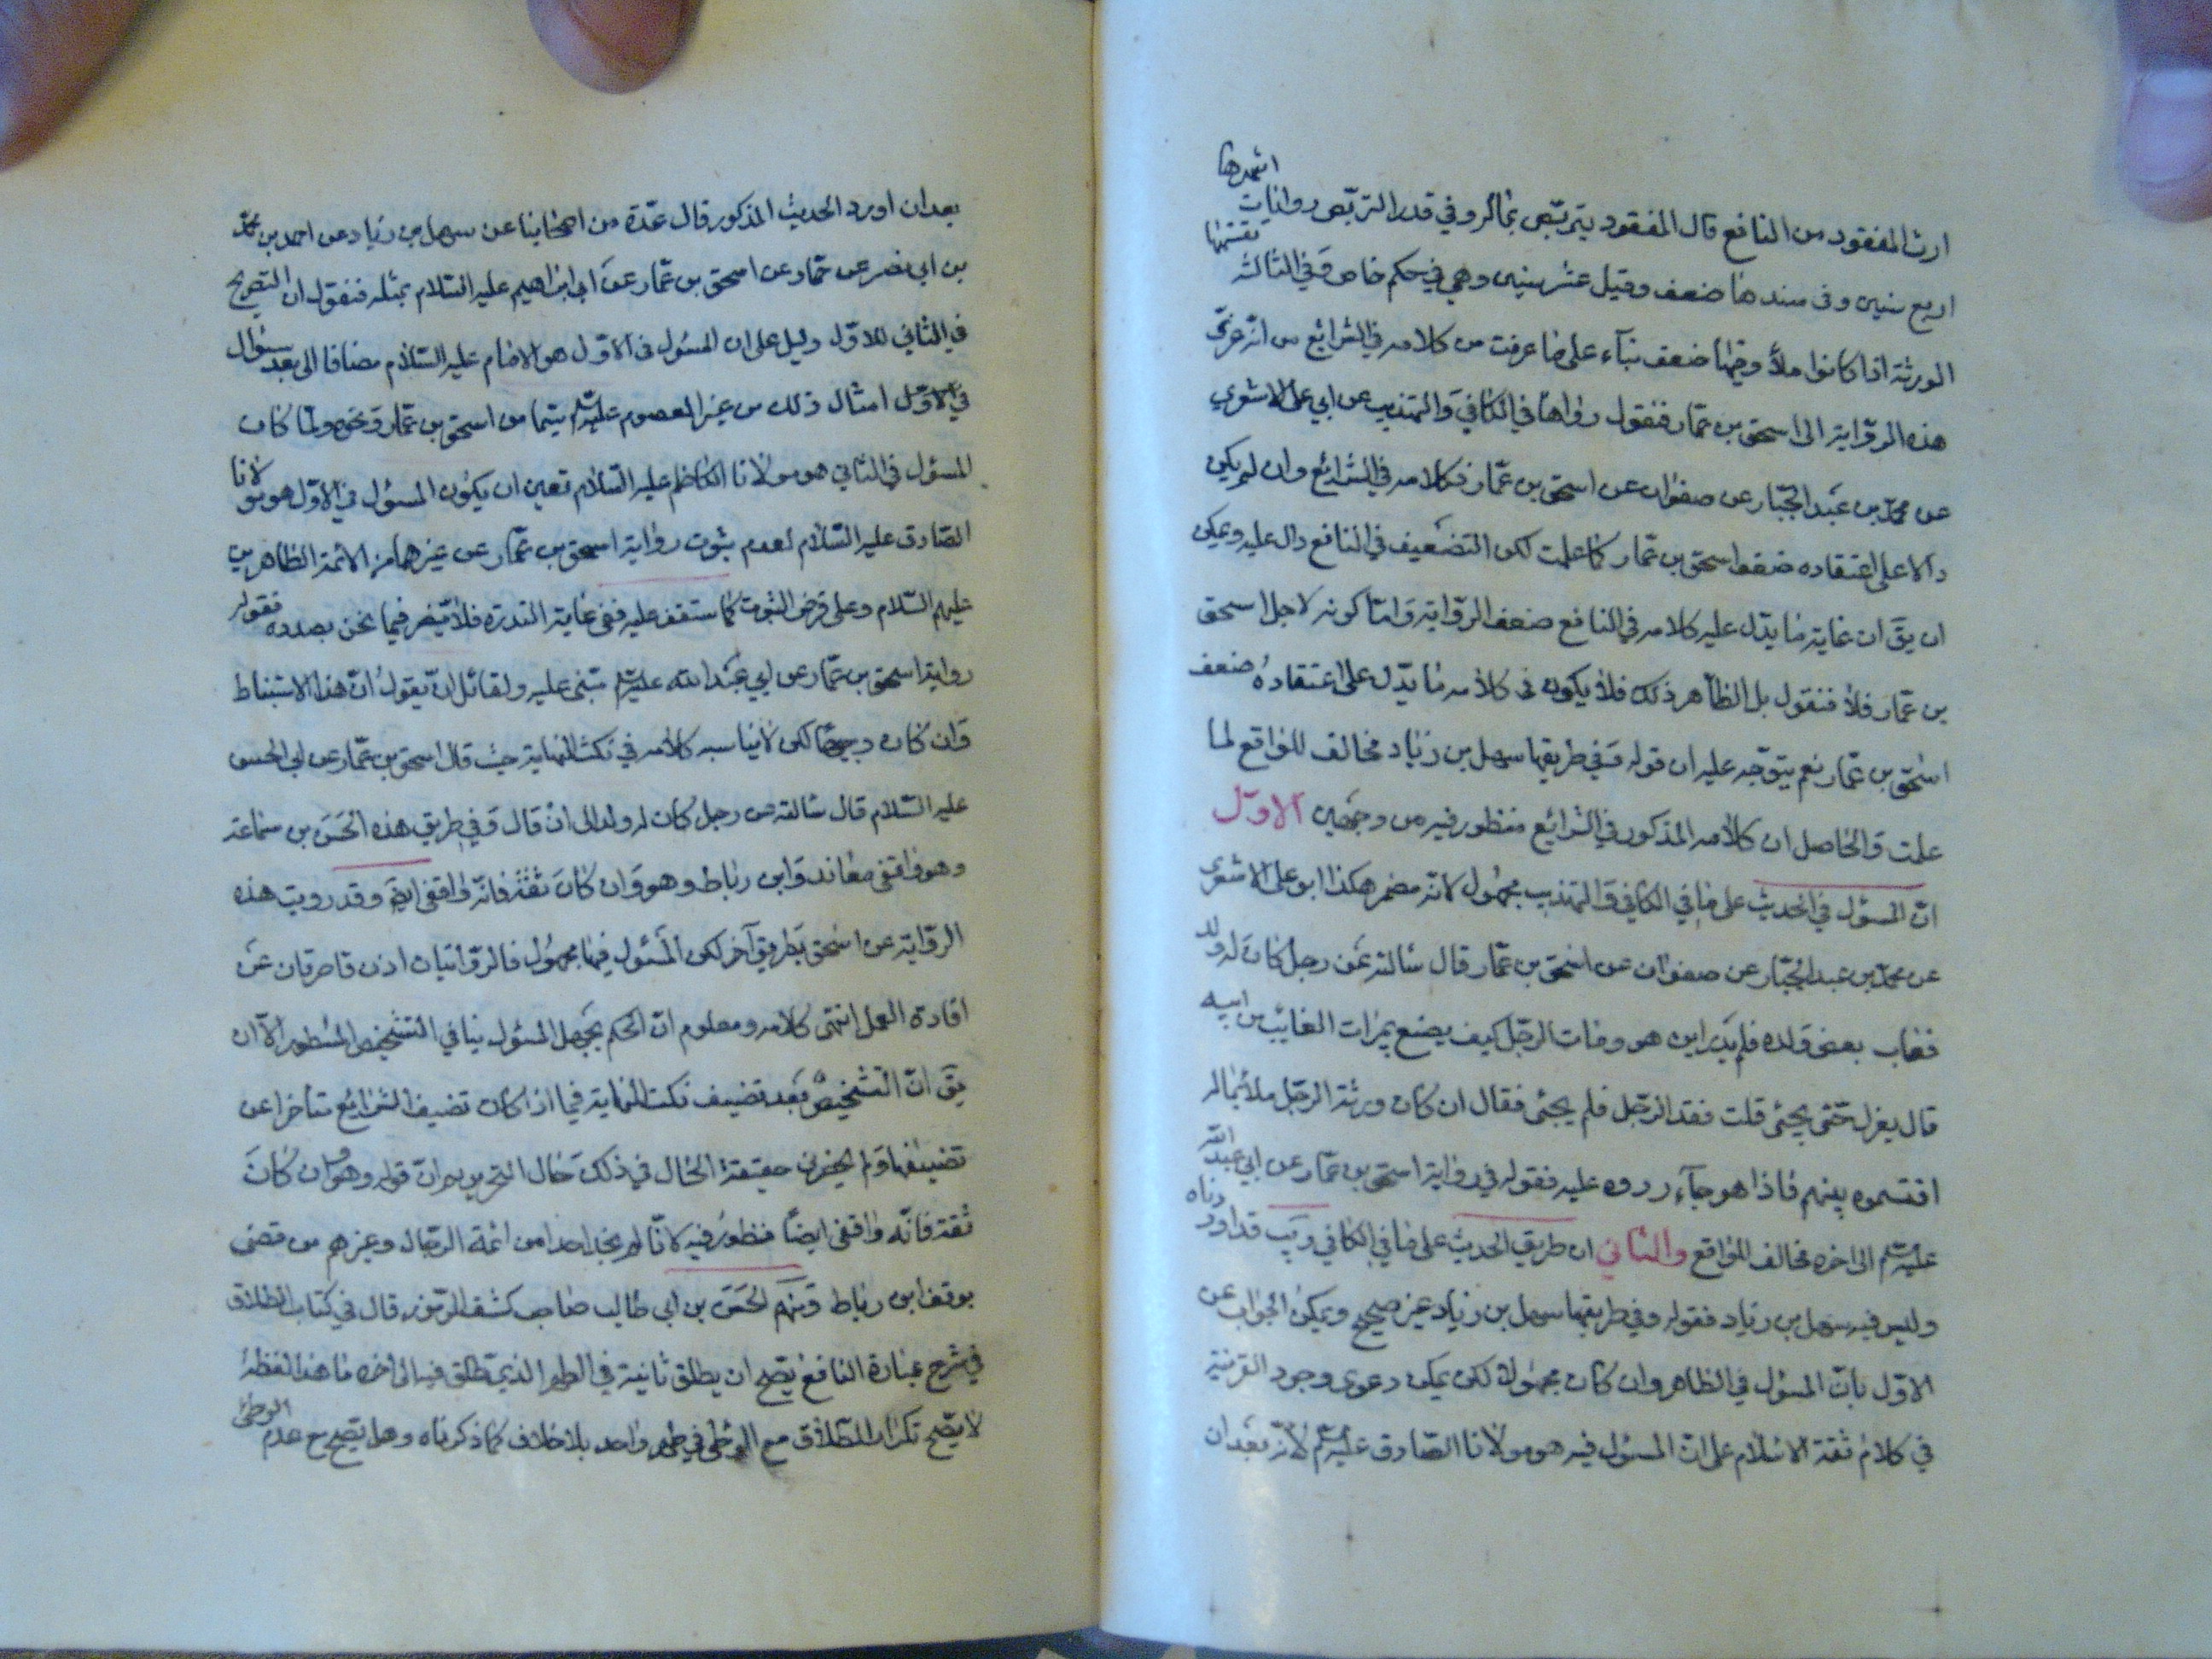 ارث المفقود من النافع قال المفقود يتربّص بماله وفي قدر التربّص روايات اشهرها
اربع سنين وفى سندها ضعف وقيل عشر سنين وهي في حكم خاص وفي الثالثة يقتسمها
الورثة اذا كانوا ملأ وفيها ضعف بنآء على ما عرفت من كلامه في الشرايع من انّه عزى
هذه الرّواية الى اسحق بن عمّار فنقول رواها في الكافي والتهذيب عن ابي على الاشعري
عن محمّد بن عبد الجبّار عن صفوان عن اسحق بن عمّار فكلامه في الشرائع وان لم يكن
دالا على اعتقاده ضعف اسحق بن عمّار كما علمت لكن التضعيف في النافع دال عليه ويمكن
ان يقَ ان غاية ما يدّل عليه كلامه في النافع ضعف الرّواية وامّا كونه لاجل اسحق
بن عمّار فلا فنقول بل الظّاهر ذلك فلا يكون فى كلامه ما يدّل على اعتقاده ضعف
اسحق بن عمّار نعم يتوجّه عليه ان قوله وفي طريقها سهل بن زياد مخالف للواقع لما
علمت والحاصل ان كلامه المذكور في الشرايع منظور فيه من وجهين الاوّل
انّ المسؤل في الحديث على ما في الكافي والتهذيب مجهول لانّه مضمر هكذا ابو على الاشعرى
عن محمّد بن عبد الجبّار عن صفوان عن اسحق بن عمّار قال سئالته عن رجل كان له ولد
فغاب بعض ولده فلم يدر اين هو ومات الرجّل كيف يصنع بميراث الغائب من ابيه
قال يعزل حتّى يجئ قلت فقد الرجّل فلم يجئ فقال ان كان ورثة الرجّل ملأ بماله
اقتسموه بينهم فاذا هو جآء ردوه عليه فقوله في رواية اسحق بن عمّار عن ابي عبد اللّه
عليه السّلم الى اخره مخالف للواقع والثاني ان طريق الحديث على ما في الكافي ويب قد اوردناه
وليس فيه سهل بن زياد فقوله وفي طريقها سهل بن زياد غير صحيح ويمكن الجواب عن
الاوّل بانّ المسؤل في الظاهر وان كان مجهولا لكن يمكن دعوى وجود القرنية
في كلام ثقة الاسلام على انّ المسؤل فيه هو مولانا الصّادق عليه السّلم لانّه بعد ان
بعد ان اورد الحديث المذكور قال عدّة من اصحابنا عن سهل بن زياد عن احمد بن محمّد
بن ابي نصر عن حمّاد عن اسحق بن عمّار عن ابي ابراهيم عليه السّلام بمثله فنقول ان التصريح
في الثاني للاوّل دليل على ان المسؤل فى الاوّل هو الامام عليه السّلام مضافا الى بعد سئوال
في الاوّل امثال ذلك من غير المعصوم عليه السّلم سيّما من اسحق بن عمّار ونحوه ولمّا كان
المسؤل في الثاني هو مولانا الكاظم عليه السّلام تعين ان يكون المسؤل في الاوّل هو مولانا
الصّادق عليه السّلام لعدم ثبوت رواية اسحق بن عمّار عن غيرهما من الائمّة الطّاهرين
عليهم السّلام وعلى فرض الثبوت كما ستقف عليه ففى غاية الندرة فلا يضر فيما نحن بصدده فقوله
رواية اسحق بن عمّار عن ابي عبد الله عليه السّلم مبنى عليه ولقائل ان يقول انّ هذا الاستنباط
وان كان وجيهًا لكن لا يناسبه كلامه في نكت النهاية حيث قال اسحق بن عمّار عن ابي الحسن
عليه السّلام قال سئالته عن رجل كان له ولد الى ان قال وفي طريق هذه الحسن بن سماعة
وهو واقفى معاند وابن رباط وهو وان كان ثقة فانّه واقفى ايضَ وقد رويت هذه
الرّواية عن اسحق بطريق آخر لكن المسئول فيها مجهول فالرّوايتان اذن قاصرتان عن
افادة العمل انتهى كلامه ومعلوم انّ الحكم بجهل المسؤل ينافي التشخيص المسطور الاّ ان
يقَ انّ التشخيص بعد تصنيف نكت النهاية فيما اذا كان تصنيف الشرايع متاخرا عن
تصنيفها ولم يحضرنى حقيقة الحال في ذلك حال التحرير ثم انّ قوله وهو وان كان
ثقة فانّه واقفى ايضًا منظور فيه لانّا لم نجد احدا من ائمة الرّجال وغيرهم من قضى
بوقف ابن رباط ومنهم الحسن بن ابي طالب صاحب كشف الرّموز قال في كتاب الطلاق
في شرح عبارة النافع يصّح ان يطلق ثانية في الطهر الذي طلق فيه الى اخره ما هذا لفظه
لا يصّح تكرار الطّلاق مع الوطى في طهر واحد بلا خلاف كما ذكرناه وهل يصّح مع عدم الوطئ